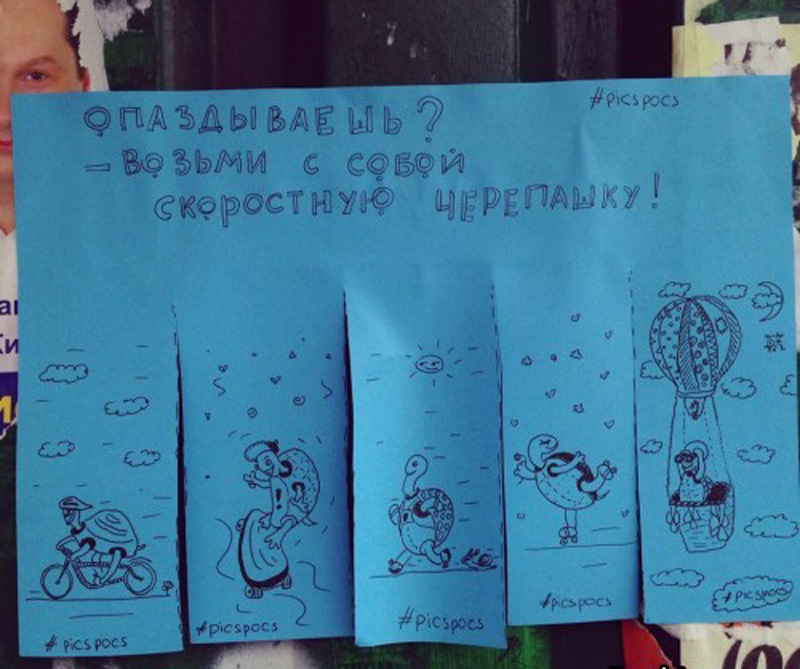 #picspocs
ОПАЗДЫВАЕШЬ?
– ВОЗЬМИ С СОБОЙ
СКОРОСТНУЮ ЧЕРЕПАШКУ!
#picspocs
#picspocs
#picspocs
#picspocs
#picspocs